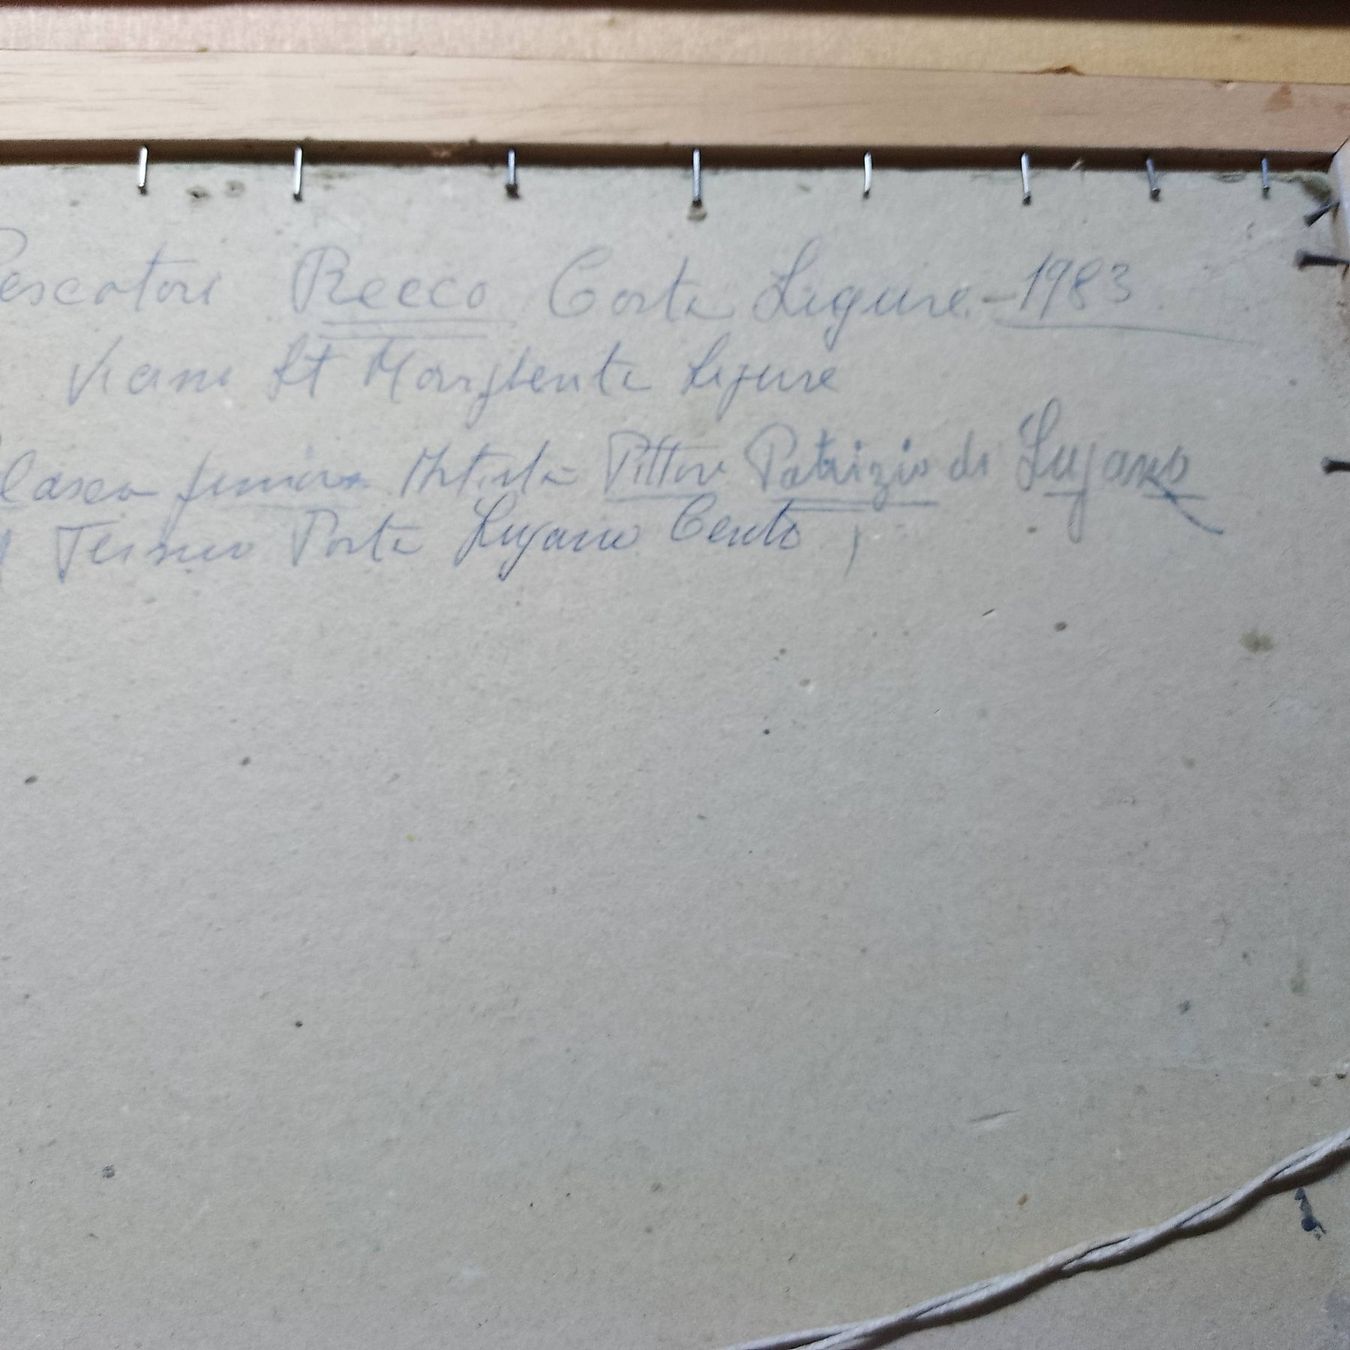 Pescatori Recco Costa Ligure - 1983
Vicino St Margherita Ligure
Artista Pittore Patrizio di Lugano
Ticino Porta Lugano Cento